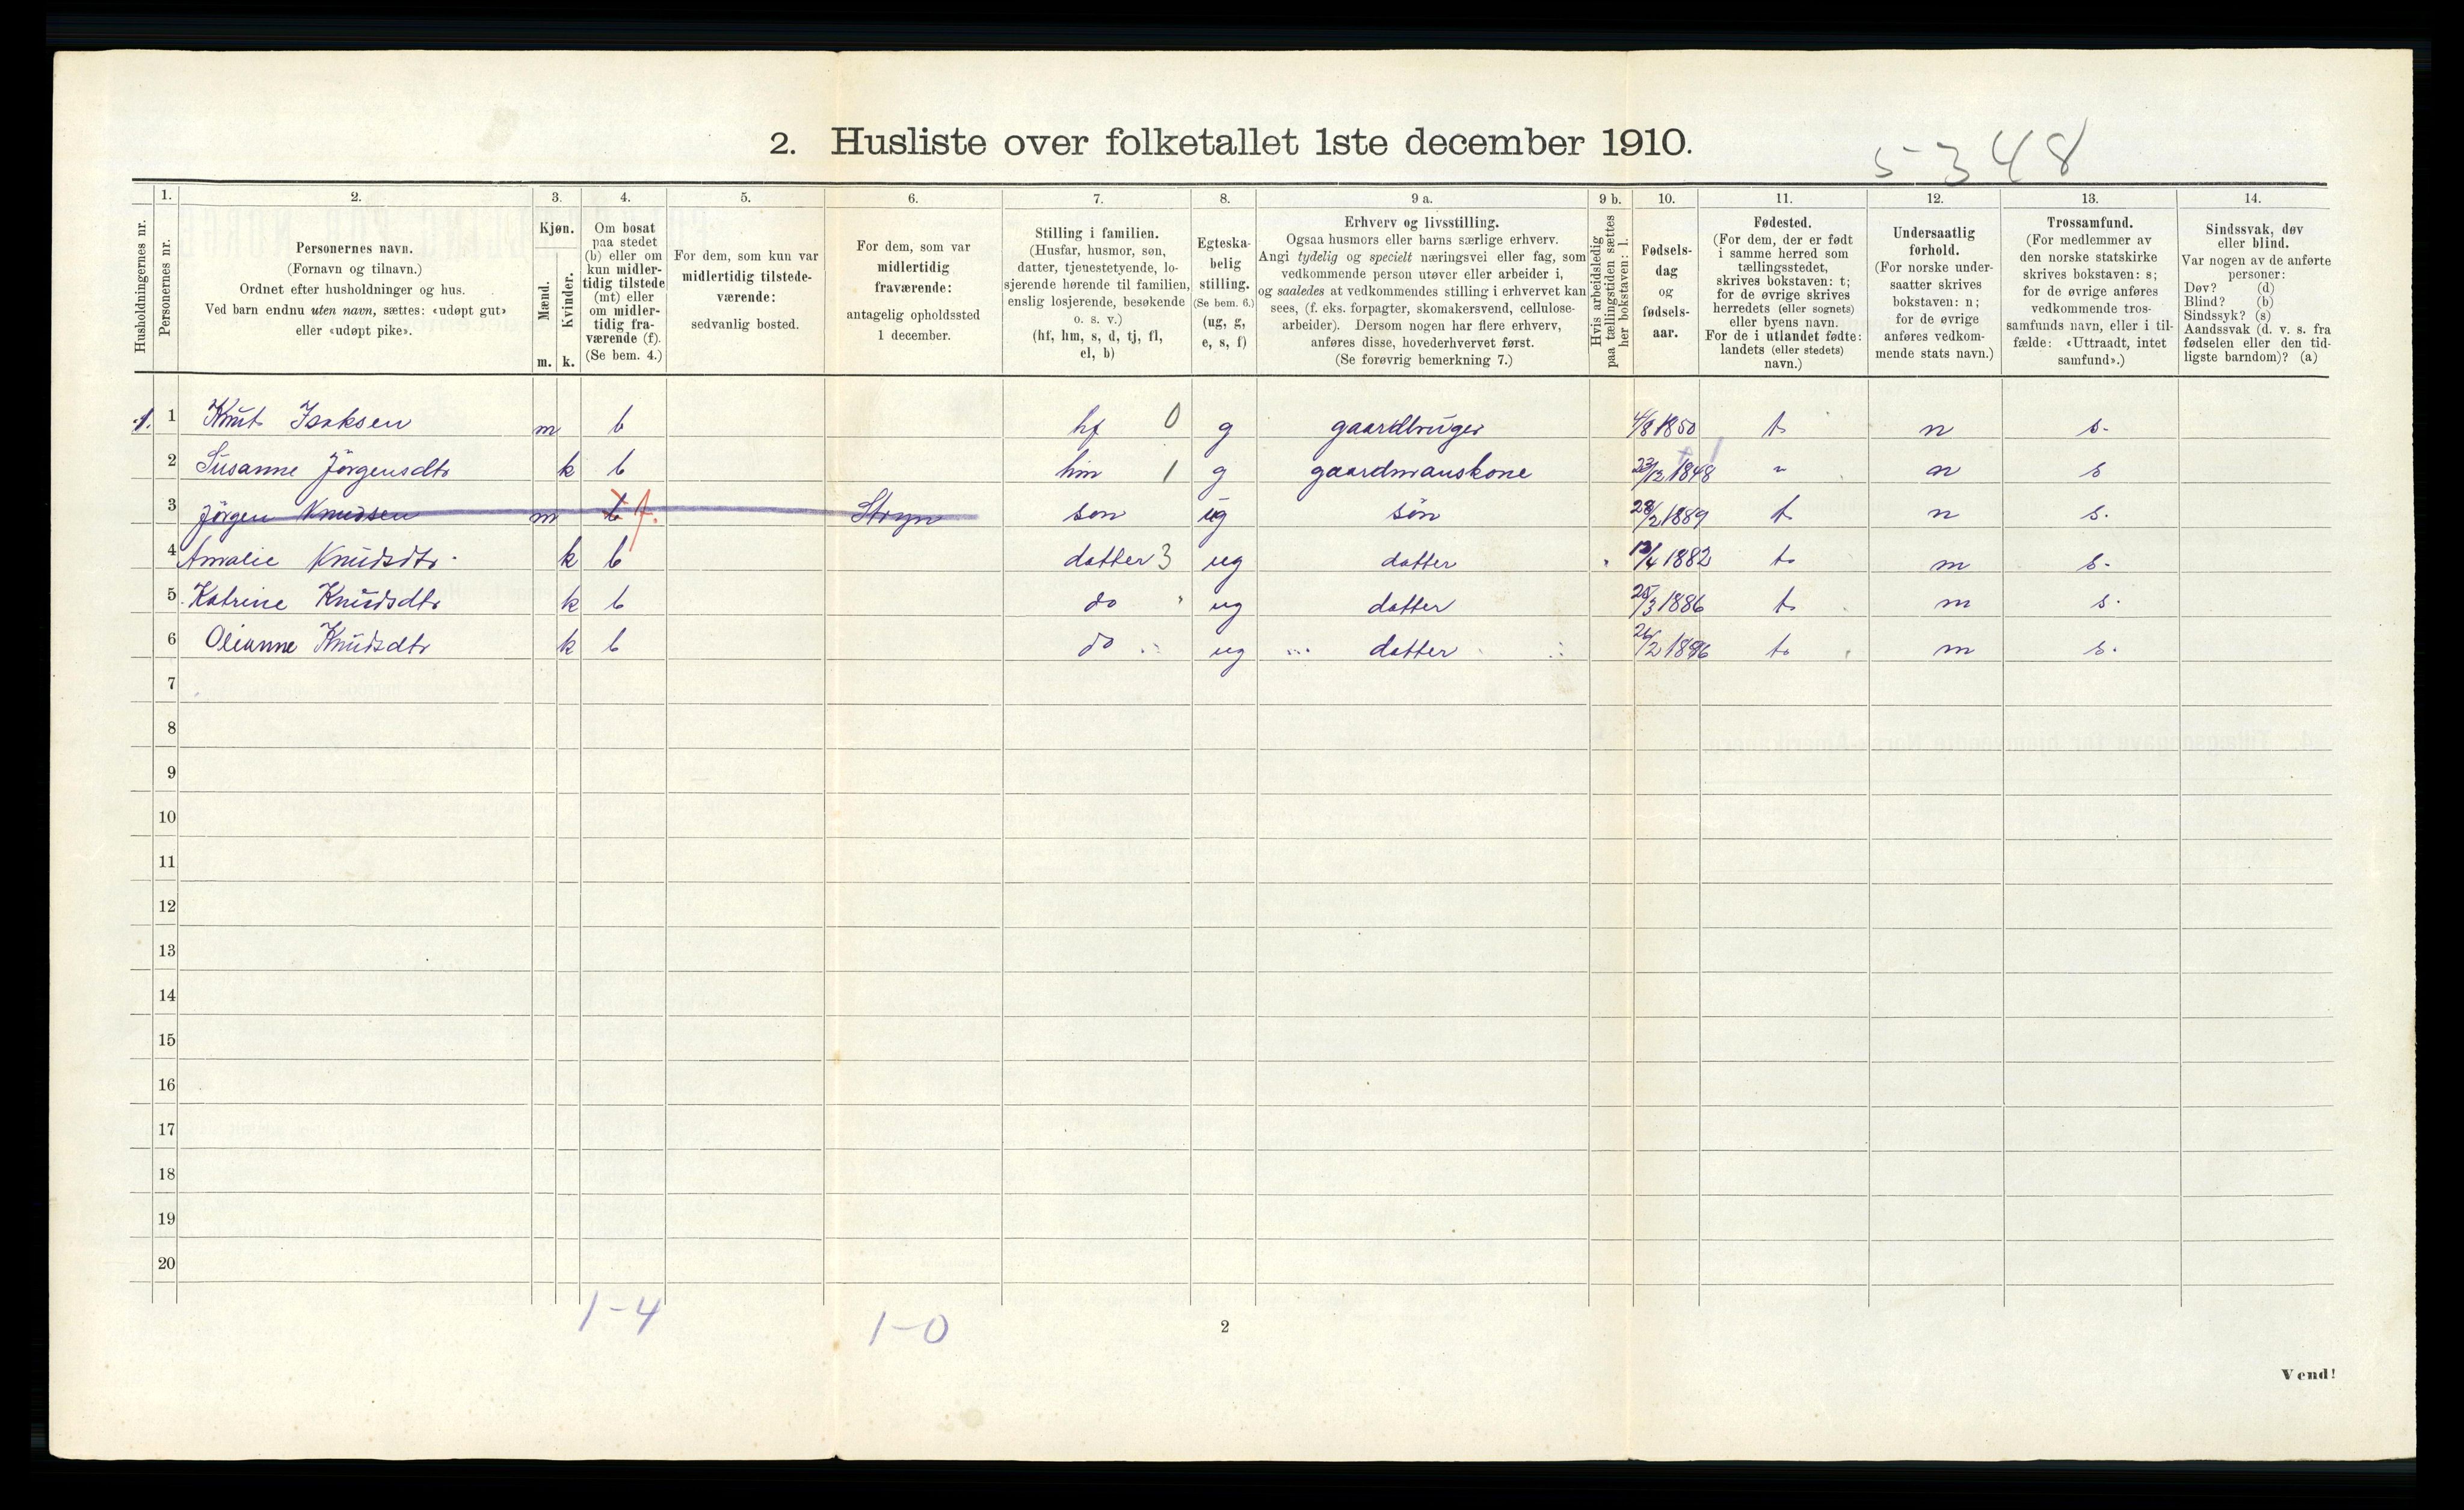 2. Husliste over folketallet 1ste december 1910.
5-348
Husholdningernes nr.
1.
Personernes nr.
2.
Personernes navn.
(Fornavn og tilnavn.)
Ordnet efter husholdninger og hus.
Ved barn endnu uten navn, sættes: «udøpt gut»
eller «udøpt pike».
3.
Kjøn.
Mænd.
Kvinder.
m. k.
4.
Om bosat
paa stedet
(b) eller om
kun midler-
tidig tilstede
(mt) eller
om midler-
tidig fra-
værende (f).
(Se bem. 4.)
5.
For dem, som kun var
midlertidig tilstede-
værende:
sedvanlig bosted.
6.
For dem, som var
midlertidig
fraværende:
antagelig opholdssted
1 december.
7.
Stilling i familien.
(Husfar, husmor, søn,
datter, tjenestetyende, lo-
sjerende hørende til familien,
enslig losjerende, besøkende
o. s. v.)
(hf, hm, s, d, tj, fl,
el, b)
8.
Egteska-
belig
stilling.
(Se bem. 6.)
(ug, g,
e, s, f)
9 a.
Erhverv og livsstilling.
Ogsaa husmors eller barns særlige erhverv.
Angi tydelig og specielt næringsvei eller fag, som
vedkommende person utøver eller arbeider i,
og saaledes at vedkommendes stilling i erhvervet kan
sees, (f. eks. forpagter, skomakersvend, cellulose-
arbeider). Dersom nogen har flere erhverv,
anføres disse, hovederhvervet først.
(Se forøvrig bemerkning 7.)
9 b.
Hvis arbeidsledig
paa tællingstiden sættes
her bokstaven: l.
10.
Fødsels-
dag
og
fødsels-
aar.
11.
Fødested.
(For dem, der er født
i samme herred som
tællingsstedet,
skrives bokstaven: t;
for de øvrige skrives
herredets (eller sognets)
eller byens navn.
For de i utlandet fødte:
landets (eller stedets)
navn.)
12.
Undersaatlig
forhold.
(For norske under-
saatter skrives
bokstaven: n;
for de øvrige
anføres vedkom-
mende stats navn.)
13.
Trossamfund.
(For medlemmer av
den norske statskirke
skrives bokstaven: s;
for de øvrige anføres
vedkommende tros-
samfunds navn, eller i til-
fælde: «Uttraadt, intet
samfund».)
14.
Sindssvak, døv
eller blind.
Var nogen av de anførte
personer:
Døv? (d)
Blind? (b)
Sindssyk? (s)
Aandssvak (d. v. s. fra
fødselen eller den tid-
ligste barndom)? (a)
1. 1 Knut Isaksen m b hf 0 g gaardbruger 4/8 1850 t n s.
2 Susanne Jörgensdtr k b hm 1 g gaardmanskone 23/12 1848 " n s
3 Jörgen Knudsen m b f. Stryn søn ug søn 28/2 1889 t n s.
4 Amalie Knudsdtr. k b datter 3 ug datter 12/4 1882 t. n s.
5 Katrine Knudsdtr k b do ug datter 25/3 1886 t. n s.
6 Olianne Knudsdtr k b do ug datter 26/2 1896 t. n s.
7
8
9
10
11
12
13
14
15
16
17
18
19
20
1-4
1-0
2
Vend!